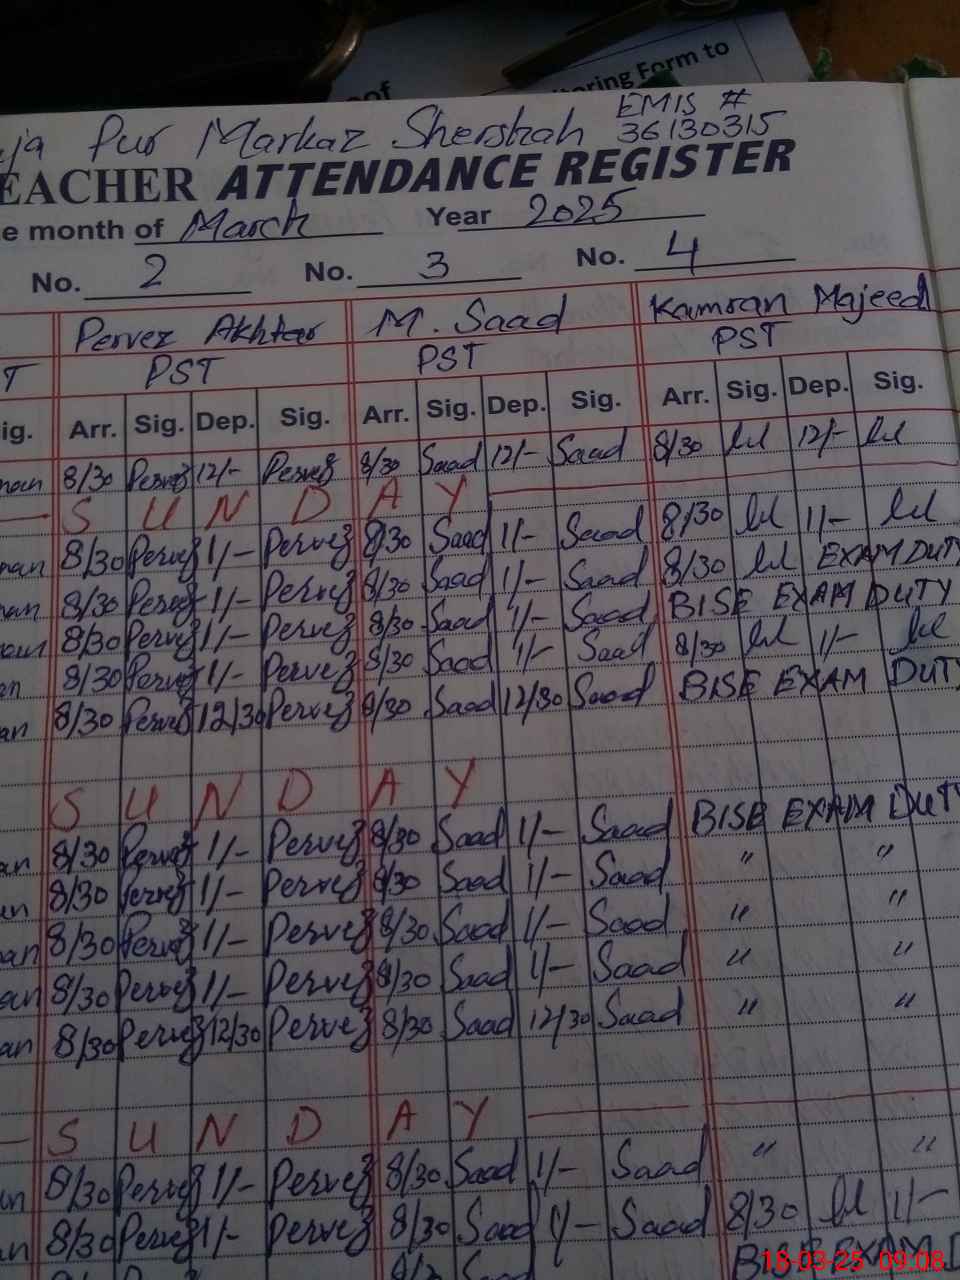 of
oring Form to
ja Pur Markaz Shershah EMIS # 36130315
EACHER ATTENDANCE REGISTER
e month of March Year 2025
No. 2 No. 3 No. 4
Pervez Akhtar M. Saad Kamran Majeed
T PST PST PST
ig. Arr. Sig. Dep. Sig. Arr. Sig. Dep. Sig. Arr. Sig. Dep. Sig.
man 8/30 Pervez 12/- Pervez 8/30 Saad 12/- Saad 8/30 12/-
S U N D A Y
man 8/30 Pervez 1/- Pervez 8/30 Saad 1/- Saad 8/30 1/-
man 8/30 Pervez 1/- Pervez 8/30 Saad 1/- Saad 8/30 EXAM DUTY
man 8/30 Pervez 1/- Pervez 8/30 Saad 1/- Saad BISE EXAM DUTY
an 8/30 Pervez 1/- Pervez 8/30 Saad 1/- Saad 8/30 1/-
an 8/30 Pervez 12/30 Pervez 8/30 Saad 12/30 Saad BISE EXAM DUTY
S U N D A Y
an 8/30 Pervez 1/- Pervez 8/30 Saad 1/- Saad BISE EXAM DUT
an 8/30 Pervez 1/- Pervez 8/30 Saad 1/- Saad " "
an 8/30 Pervez 1/- Pervez 8/30 Saad 1/- Saad " "
an 8/30 Pervez 1/- Pervez 8/30 Saad 1/- Saad " "
an 8/30 Pervez 12/30 Pervez 8/30 Saad 12/30 Saad " "
S U N D A Y
an 8/30 Pervez 1/- Pervez 8/30 Saad 1/- Saad " "
an 8/30 Pervez 1/- Pervez 8/30 Saad 1/- Saad 8/30 1/-
BISE EXAM D
18-03-25 09:08